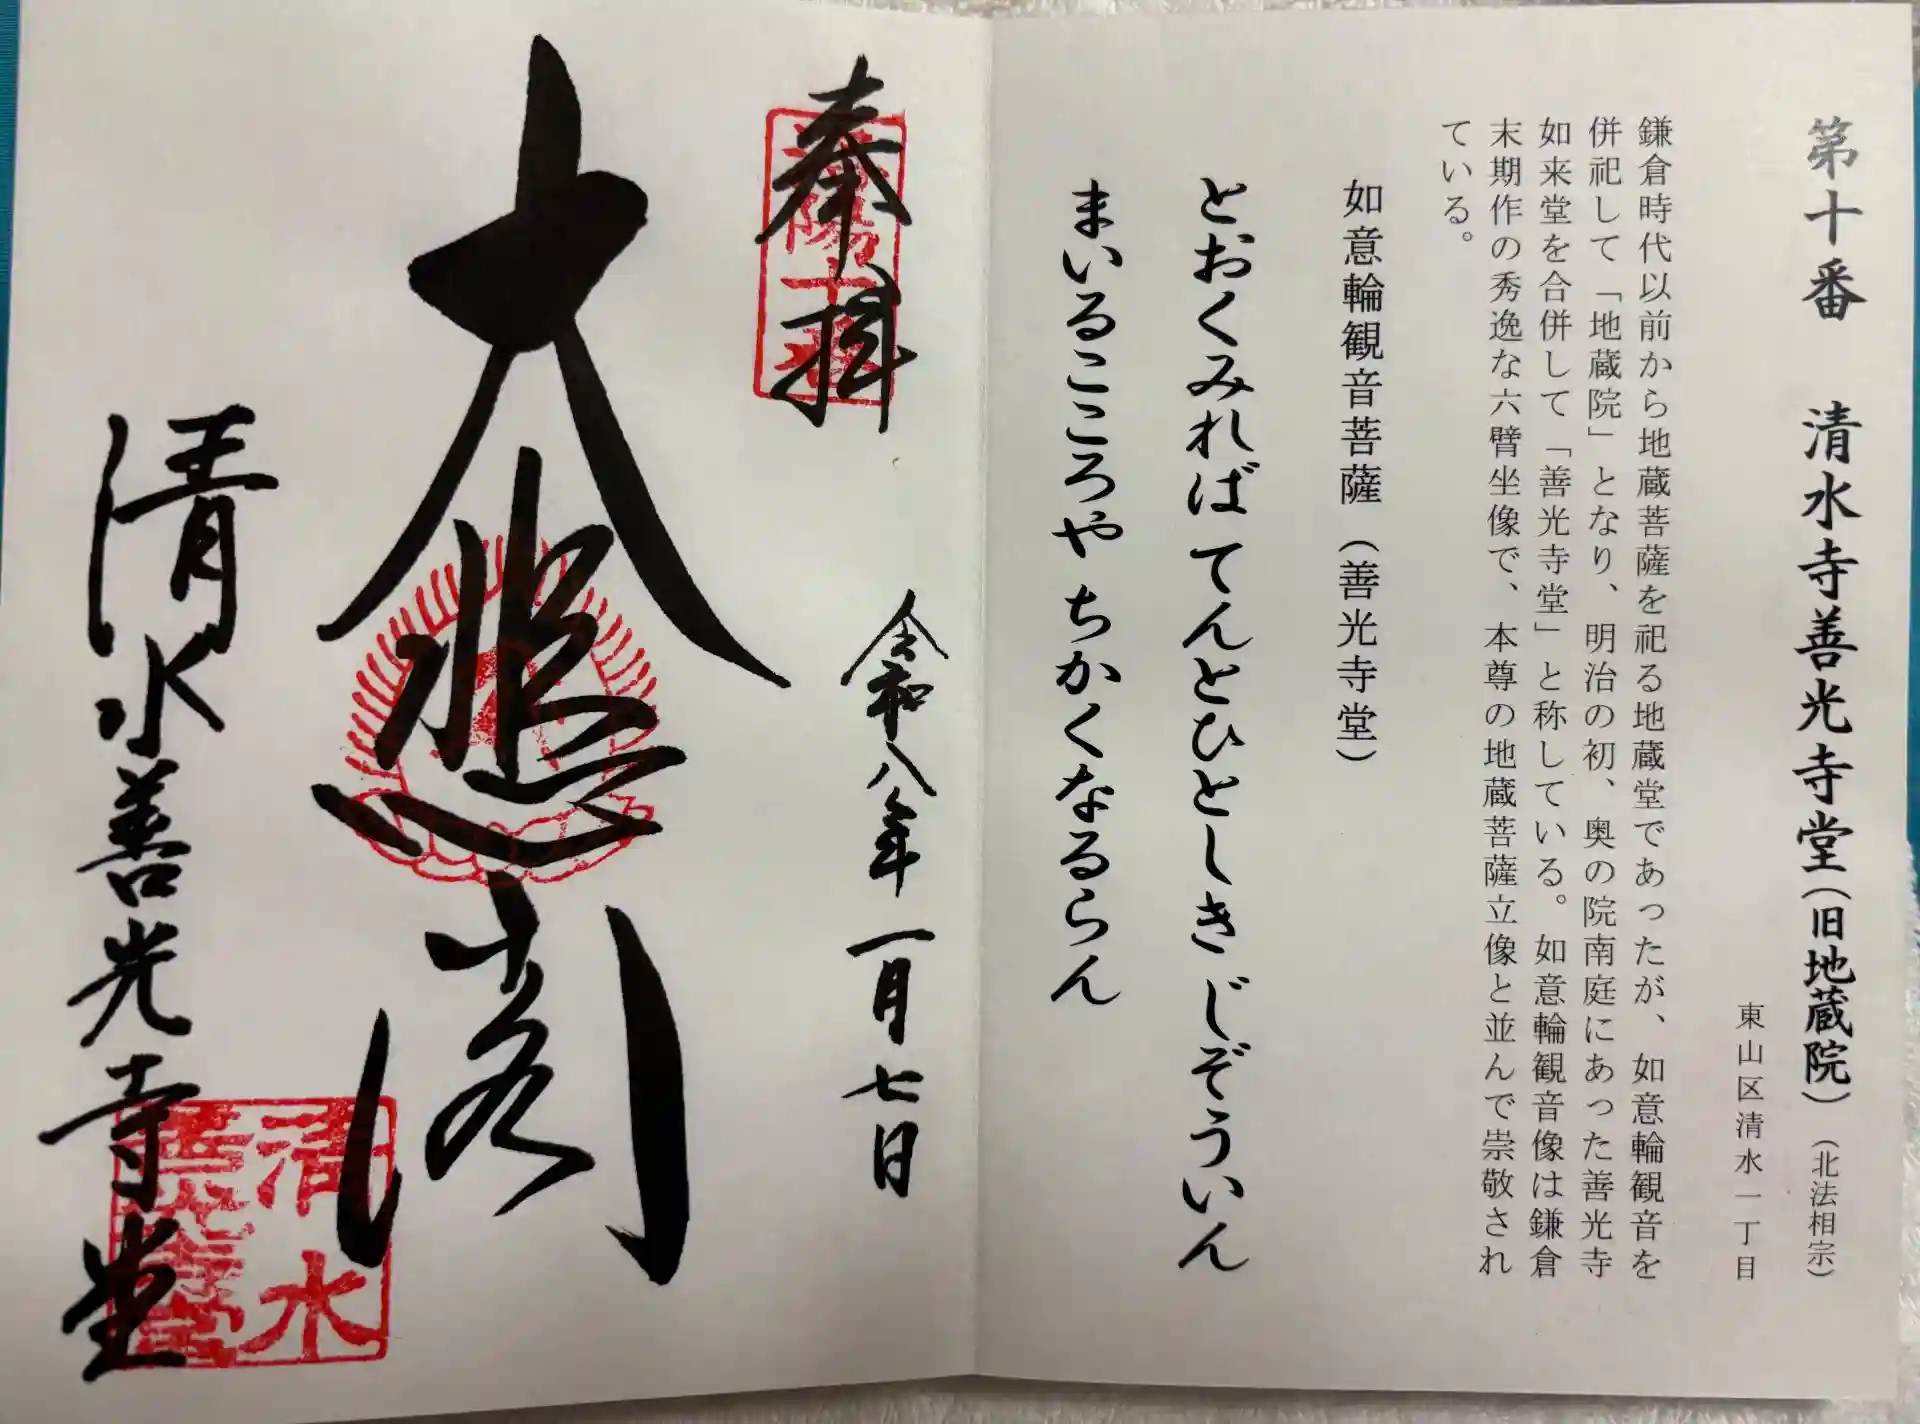 第十番 清水寺善光寺堂(旧地蔵院)(北法相宗)
東山区清水一丁目
鎌倉時代以前から地蔵菩薩を祀る地蔵堂であったが、如意輪観音を
併祀して「地蔵院」となり、明治の初、奥の院南庭にあった善光寺
如来堂を合併して「善光寺堂」と称している。如意輪観音像は鎌倉
末期作の秀逸な六臂坐像で、本尊の地蔵菩薩立像と並んで崇敬され
ている。
如意輪観音菩薩(善光寺堂)
とおくみれば てんとひとしき じぞういん
まいるこころや ちかくなるらん
奉拝
洛陽十番
令和八年一月七日
大悲閣
清水善光寺堂
清水